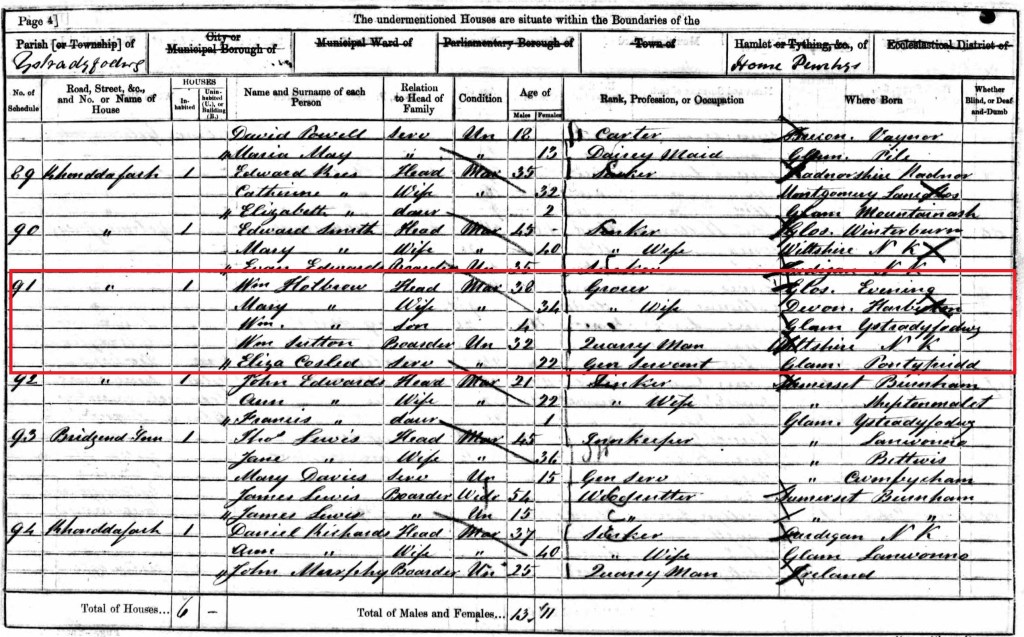 Page 4]
The undermentioned Houses are situate within the Boundaries of the
Parish [or Township] of
Ystradyfodwg
City or
Municipal Borough of
Municipal Ward of
Parliamentary Borough of
Town of
Hamlet or Tything, &c., of
Home Penrhys
Ecclesiastical District of
No. of Schedule
Road, Street, &c., and No. or Name of House
HOUSES
Inhabited
Uninhabited (U.), or Building (B.)
Name and Surname of each Person
Relation to Head of Family
Condition
Age of
Males
Females
Rank, Profession, or Occupation
Where Born
Whether Blind, or Deaf-and-Dumb
David Powell Serv Un 18 Carter Vaynor
Maria May " " 13 Dairy Maid Glam. Pile
89 Rhonddafach 1 Edward Rees Head Mar 35 Sinker Radnorshire Radnor
Catherine " Wife " 32 Montgomery
Elizabeth " daur 2 Glam Mountainash
90 " 1 Edward Smith Head Mar 45 - Sinker Glos. Winterburn
Mary " Wife " 40 " Wife Wiltshire N K
Evan Edwards Boarder Un 35 Sinker Cardigan N K
91 " 1 Wm Holbrow Head Mar 38 Grocer Glos. Evening
Mary " Wife " 34 " Wife Devon.
Wm. " Son 4 Glam Ystradyfodwg
Wm Sutton Boarder Un 32 Quarry Man Wiltshire N K
Eliza Cosled Serv " 22 Gen Servant Glam. Pontypridd
92 " 1 John Edwards Head Mar 21 Sinker Somerset Burnham
Ann " Wife " 22 " Wife " Sheptonmalet
Francis " daur 1 Glam. Ystradyfodwg
93 Bridgend Inn 1 Thos Lewis Head Mar 45 Innkeeper " Lanwonno
Jane " Wife " 36 " Bettwis
Mary Davies Serv Un 15 Gen Serv "
James Lewis Boarder Widr 54 Somerset Burnham
James Lewis " Un 15 " " "
94 Rhonddafach 1 Daniel Richards Head Mar 37 Sinker Cardigan N K
Ann " Wife " 40 " Wife Glam Lanwonno
John Murrphy Boarder Un 25 Quarry Man Ireland
Total of Houses... 6 -
Total of Males and Females... 13 11